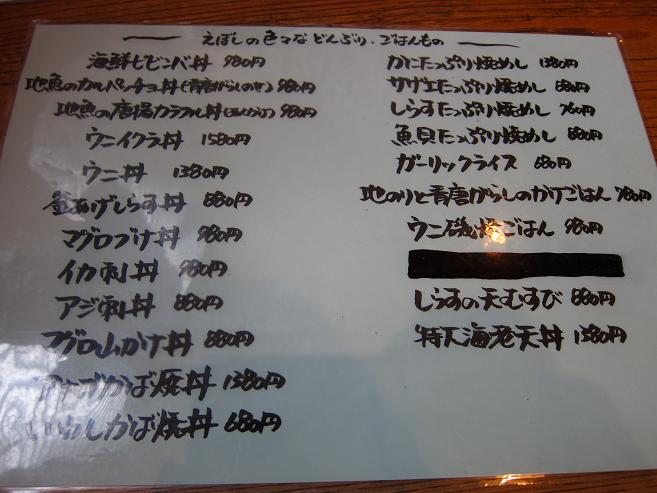 えぼしの色々などんぶり、ごはんもの
海鮮ビビンバ丼 980円
地魚のカルパッチョ丼(青唐がらしのせ) 980円
地魚の唐揚カラフル丼 980円
ウニイクラ丼 1580円
ウニ丼 1380円
釜あげしらす丼 880円
マグロづけ丼 980円
イカ刺丼 980円
アジ刺丼 880円
マグロ山かけ丼 880円
アナゴかば焼丼 1380円
いわしかば焼丼 680円
かにたっぷり焼めし 1380円
サザエたっぷり焼めし 880円
しらすたっぷり焼めし 760円
魚貝たっぷり焼めし 880円
ガーリックライス 680円
地のりと青唐がらしのかけごはん 780円
ウニ磯焼ごはん 980円
しらすの天むすび 880円
特大海老天丼 1380円